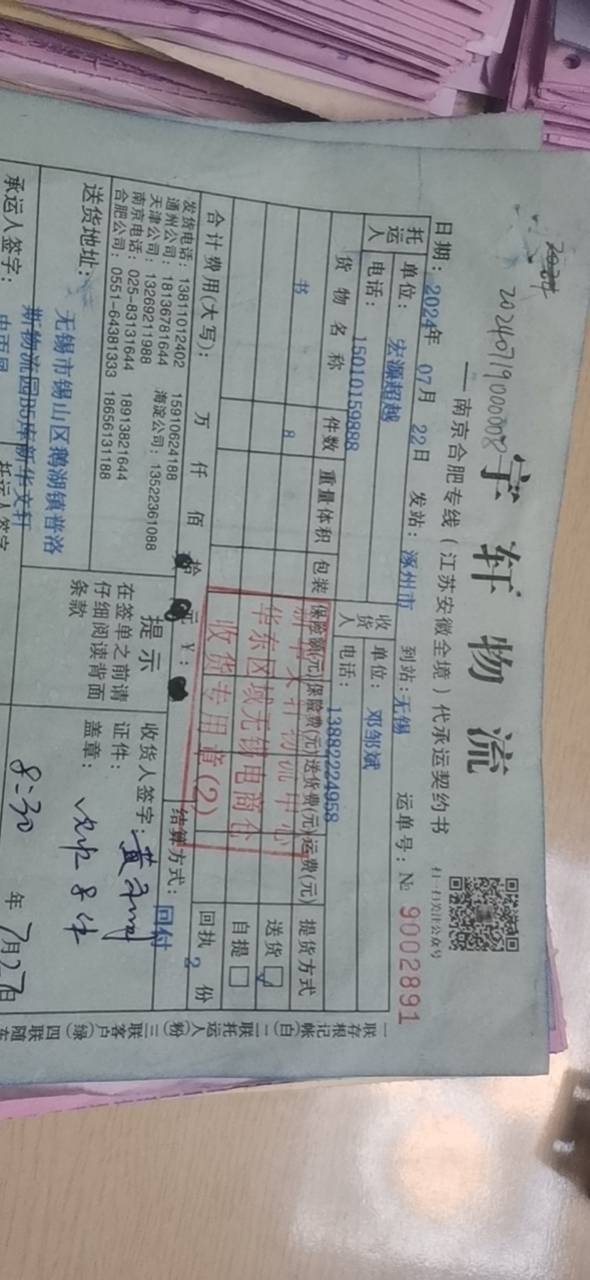 20240719000008
宇轩物流
扫一扫关注公众号
——南京合肥专线(江苏安徽全境)代承运契约书
日期:2024年 07月 22日 发站:涿州市 到站:无锡 运单号:№ 9002891
托运人 单位:宏源超越 收货人 单位:邓邹斌
电话:15010159888 电话:13882224958
货物名称 件数 重量体积 包装 保险额(元) 保险费(元) 送货费(元) 运费(元) 提货方式
书 8 送货☑
自提□
华东区域无锡电商仓
收货专用章(2)
合计费用(大写): 万 仟 佰 拾 元 ¥: 回执 2 份
结算方式:回付
发货电话:13811012402 15910624188
通州公司:18136781644 海淀公司:13522361088
天津公司:13269211988
南京电话:025-83131644 18913821644
合肥公司:0551-64381333 18656131188
提示
在签单之前请
仔细阅读背面
条款
收货人签字:
证件:
盖章:
送货地址:无锡市锡山区鹅湖镇普洛
斯物流园B5库新华文轩
承运人签字:
托运人签字
8:30 年 7月27日
一联存根记帐(白)二联托运人(粉)三联客户(绿)四联随车